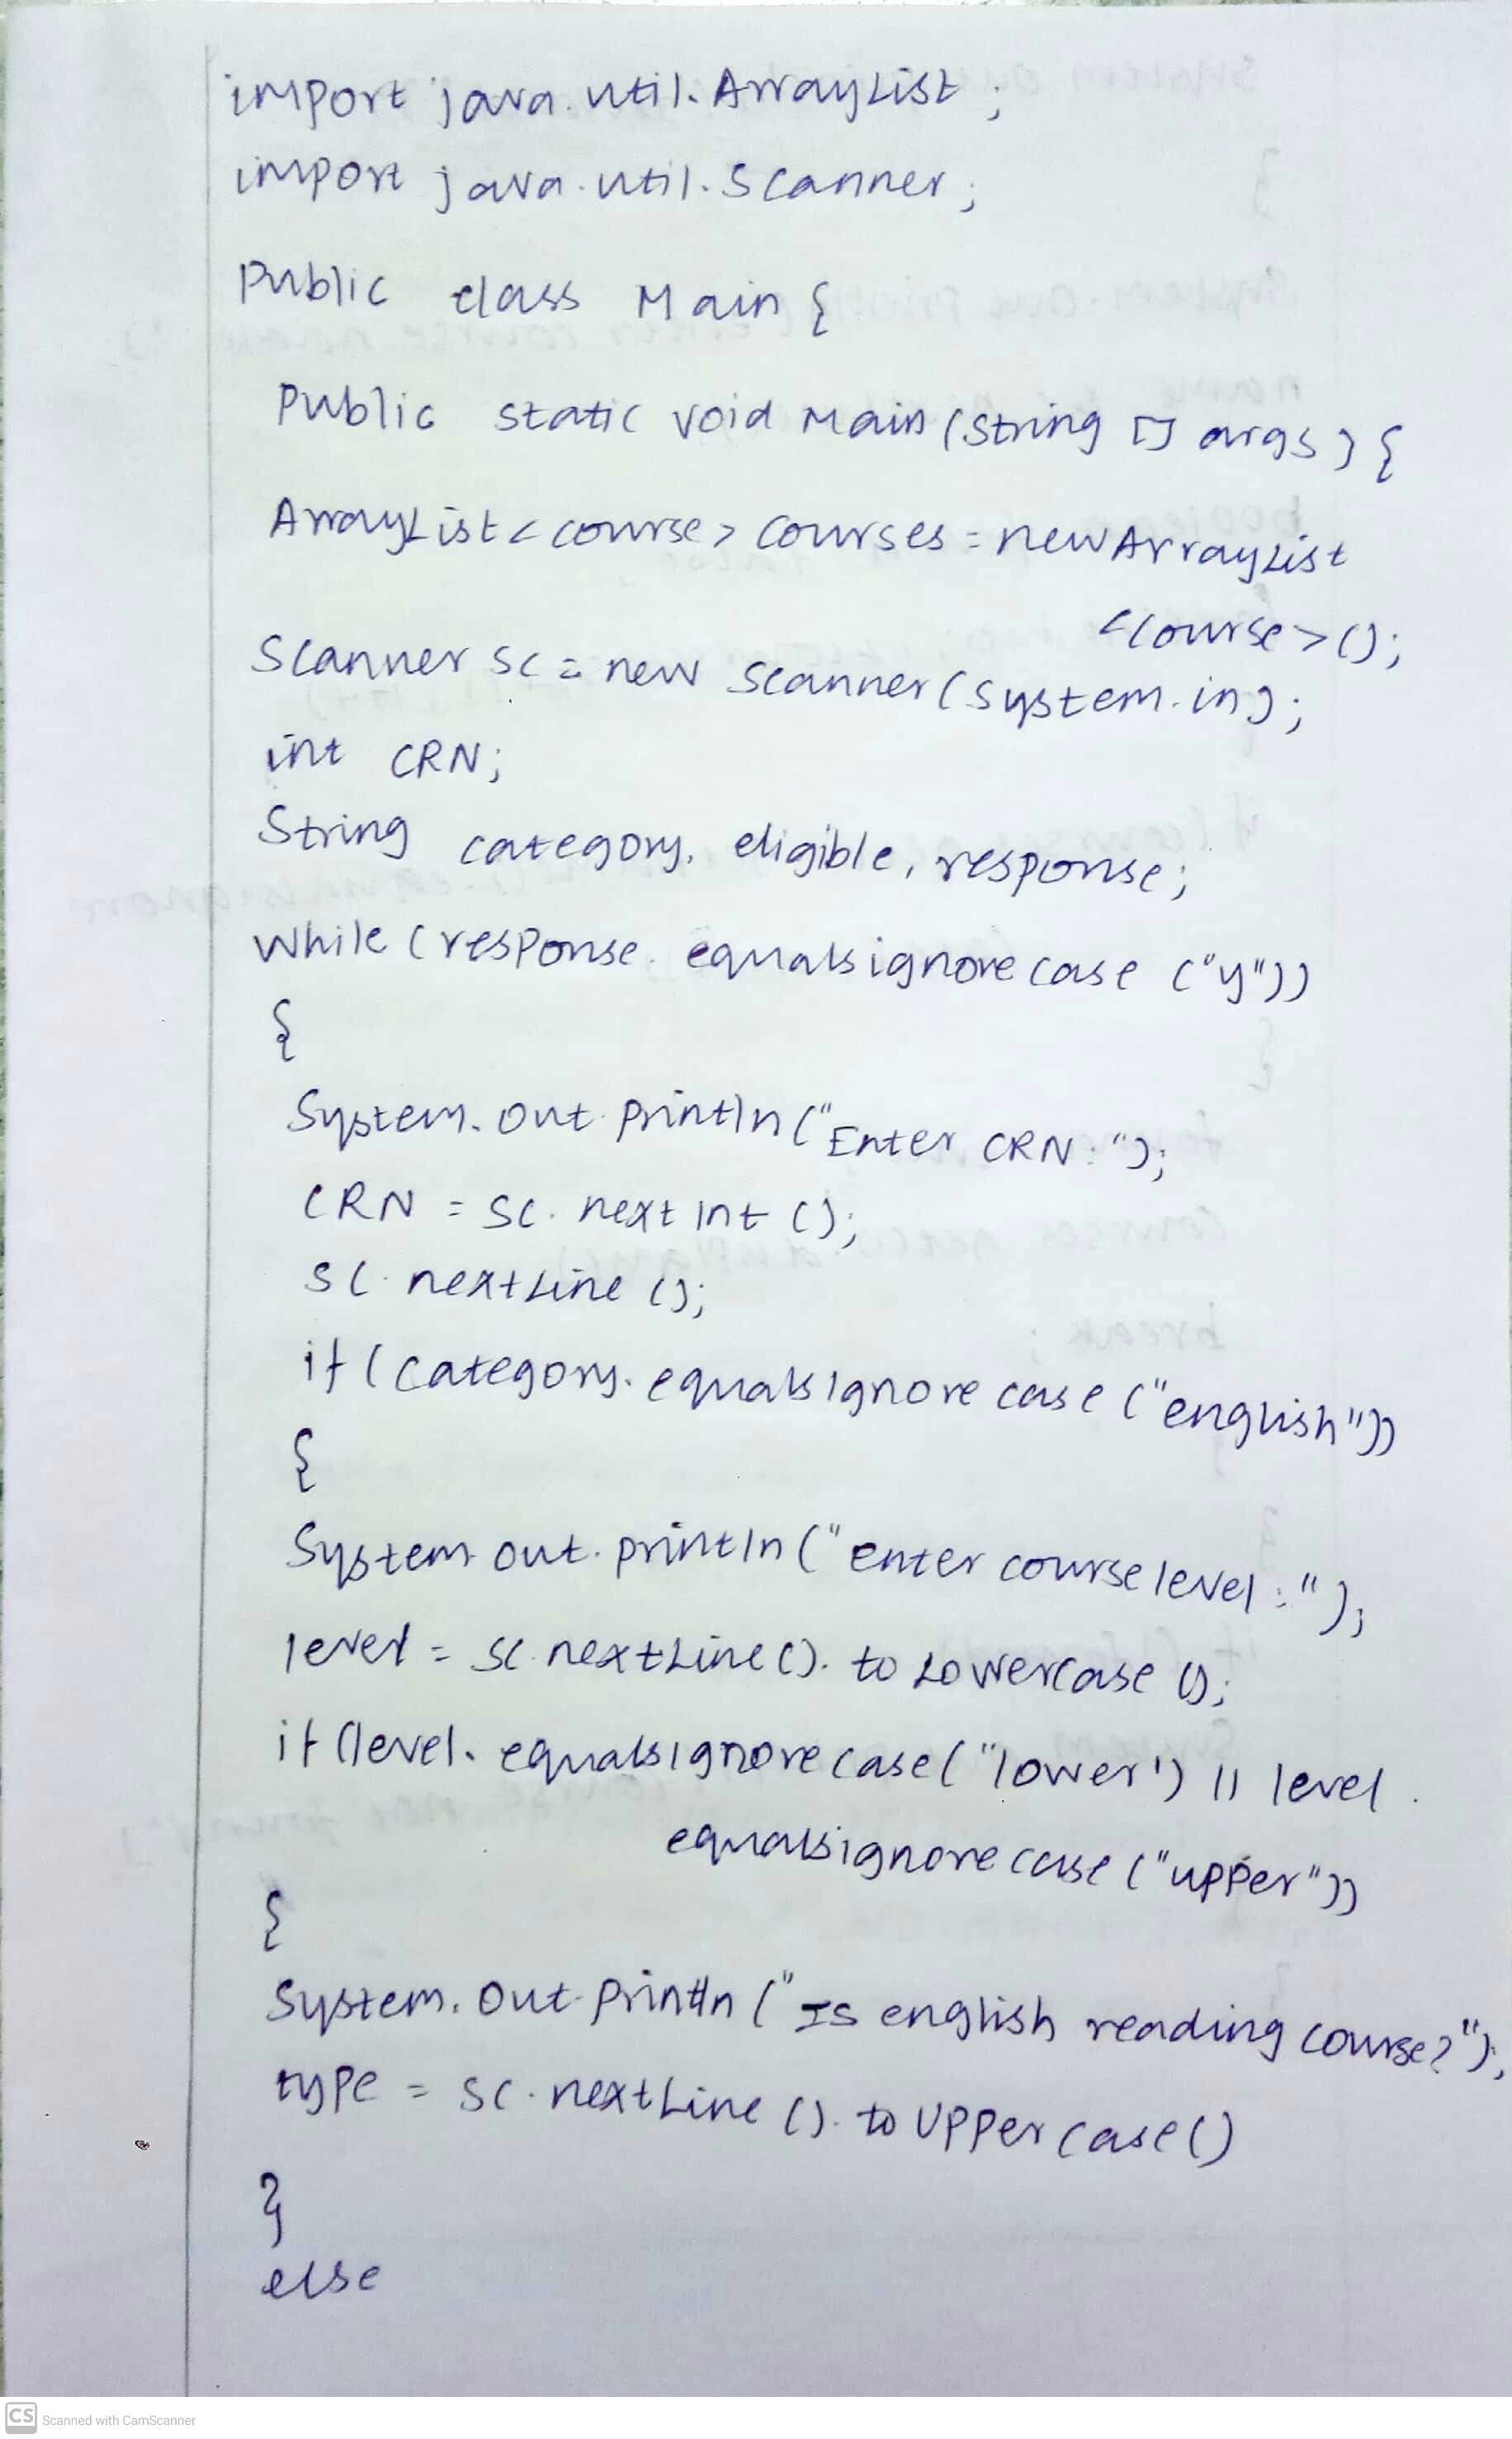 import java.util.ArrayList;
import java.util.Scanner;
Public class Main {
Public static void Main (String [] args) {
ArrayList<course> courses = new ArrayList
<course>();
Scanner sc = new Scanner(System.in);
int CRN;
String category, eligible, response;
While (response. equalsignorecase ("y"))
{
System.out.println("Enter CRN:");
CRN = sc.next int ();
sc.nextLine ();
if (category. equalsIgnorecase ("english"))
{
System out.println("enter course level:");
level = sc.nextLine(). to Lowercase ();
if (level. equalsIgnorecase("lower') || level.
equalsignorecase ("upper"))
{
System.out.println ("Is english reading course?");
type = sc.nextLine (). to Upper case()
}
else
CS Scanned with CamScanner